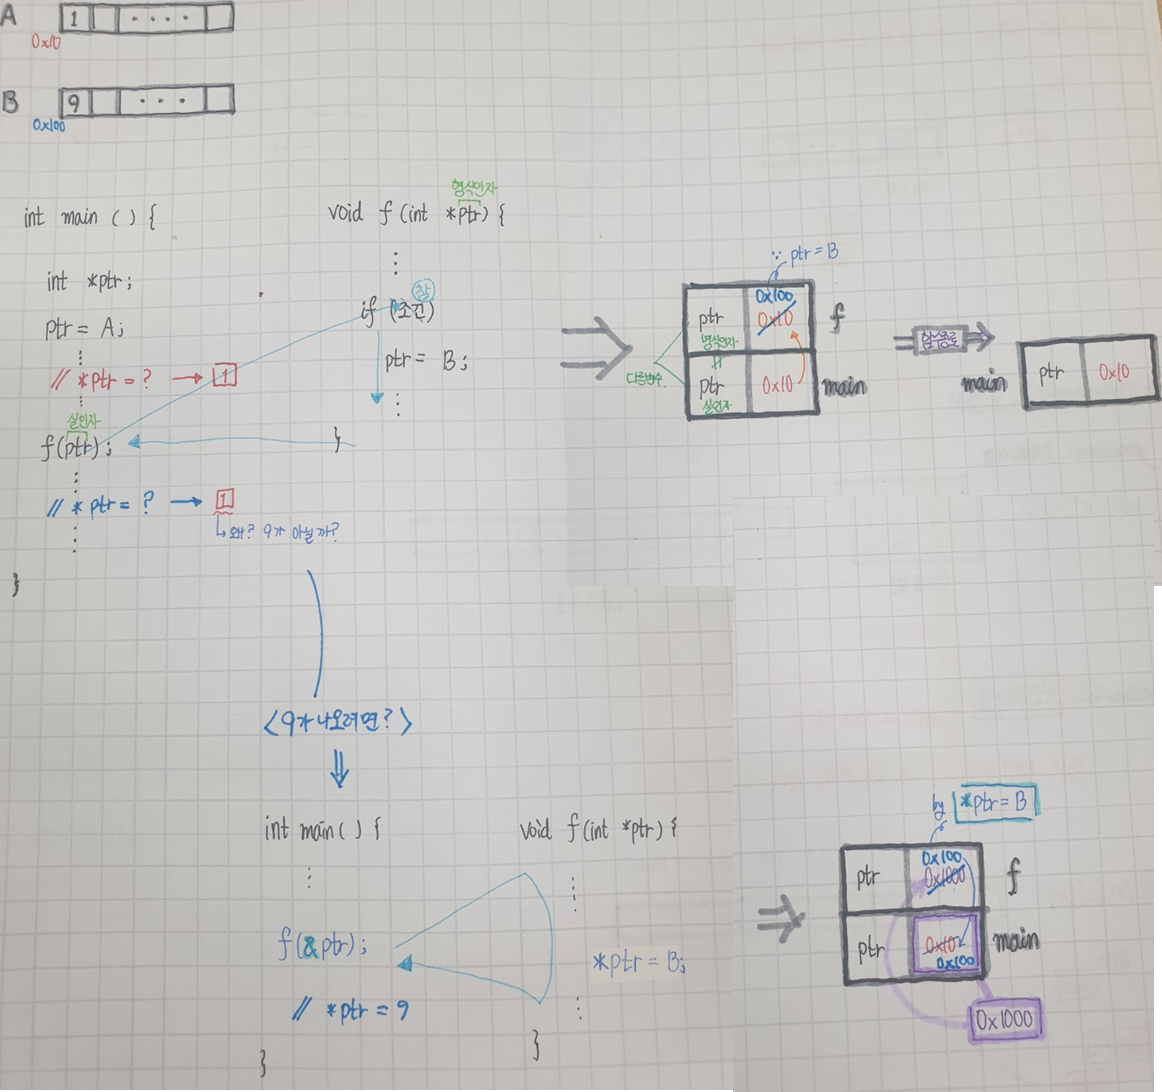 A 1 ....
0x10
B 9 ...
0x100
int main () {
int *ptr;
ptr = A;
// *ptr = ? → 1
실인자
f(ptr);
// *ptr = ? → 1
왜? 9가 아닐까?
}
형식인자
void f (int *ptr) {
참
if (조건)
ptr = B;
}
∵ ptr = B
ptr 0x100 0x10 f
형식인자
≠
다른변수
ptr 0x10 main
실인자
함수종료
main ptr 0x10
<9가 나오려면?>
int main ( ) {
f(&ptr);
// *ptr = 9
}
void f(int *ptr) {
*ptr = B;
}
by *ptr = B
ptr 0x100 0x1000 f
ptr 0x10 0x100 main
0x1000